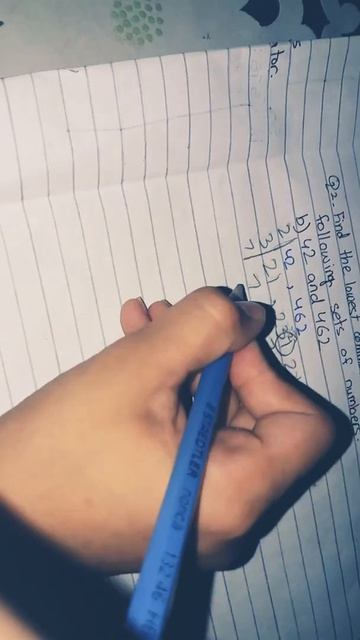 ator.
Q2. Find the lowest
following sets of numbers.
b) 42 and 462
2 | 42 , 462
3 | 21 , 231
7 | 7
STAEDTLER norica 132 46 HB